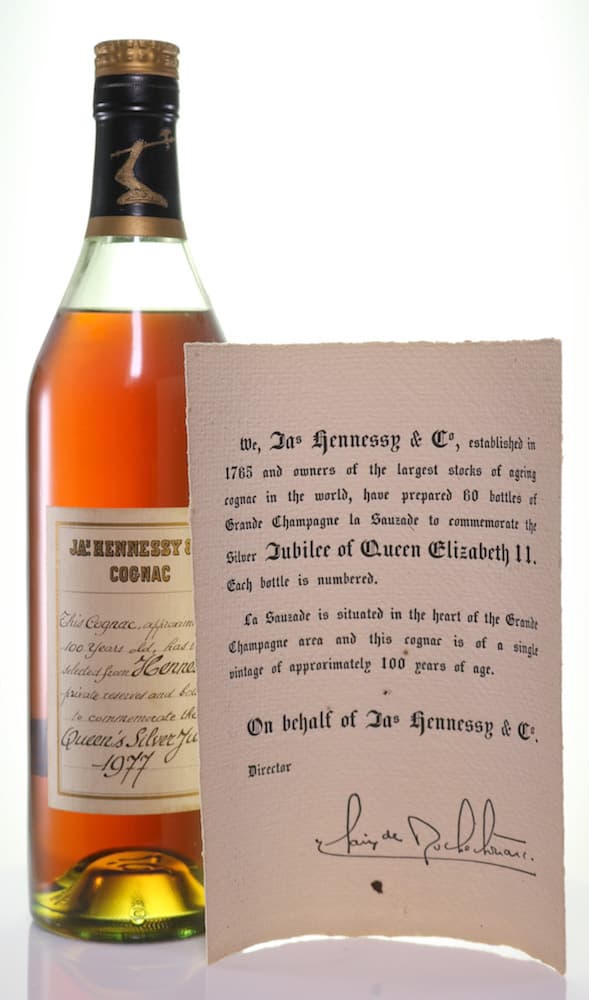 JAS HENNESSY &
COGNAC
This Cognac,
100 years old, has
selected from
private reserves and
to commemorate the
Queen's Silver
1977
We, Jas Hennessy & Co, established in
1765 and owners of the largest stocks of ageing
cognac in the world, have prepared 60 bottles of
Grande Champagne la Sauzade to commemorate the
Silver Jubilee of Queen Elizabeth II.
Each bottle is numbered.
La Sauzade is situated in the heart of the Grande
Champagne area and this cognac is of a single
vintage of approximately 100 years of age.
On behalf of Jas Hennessy & Co.
Director